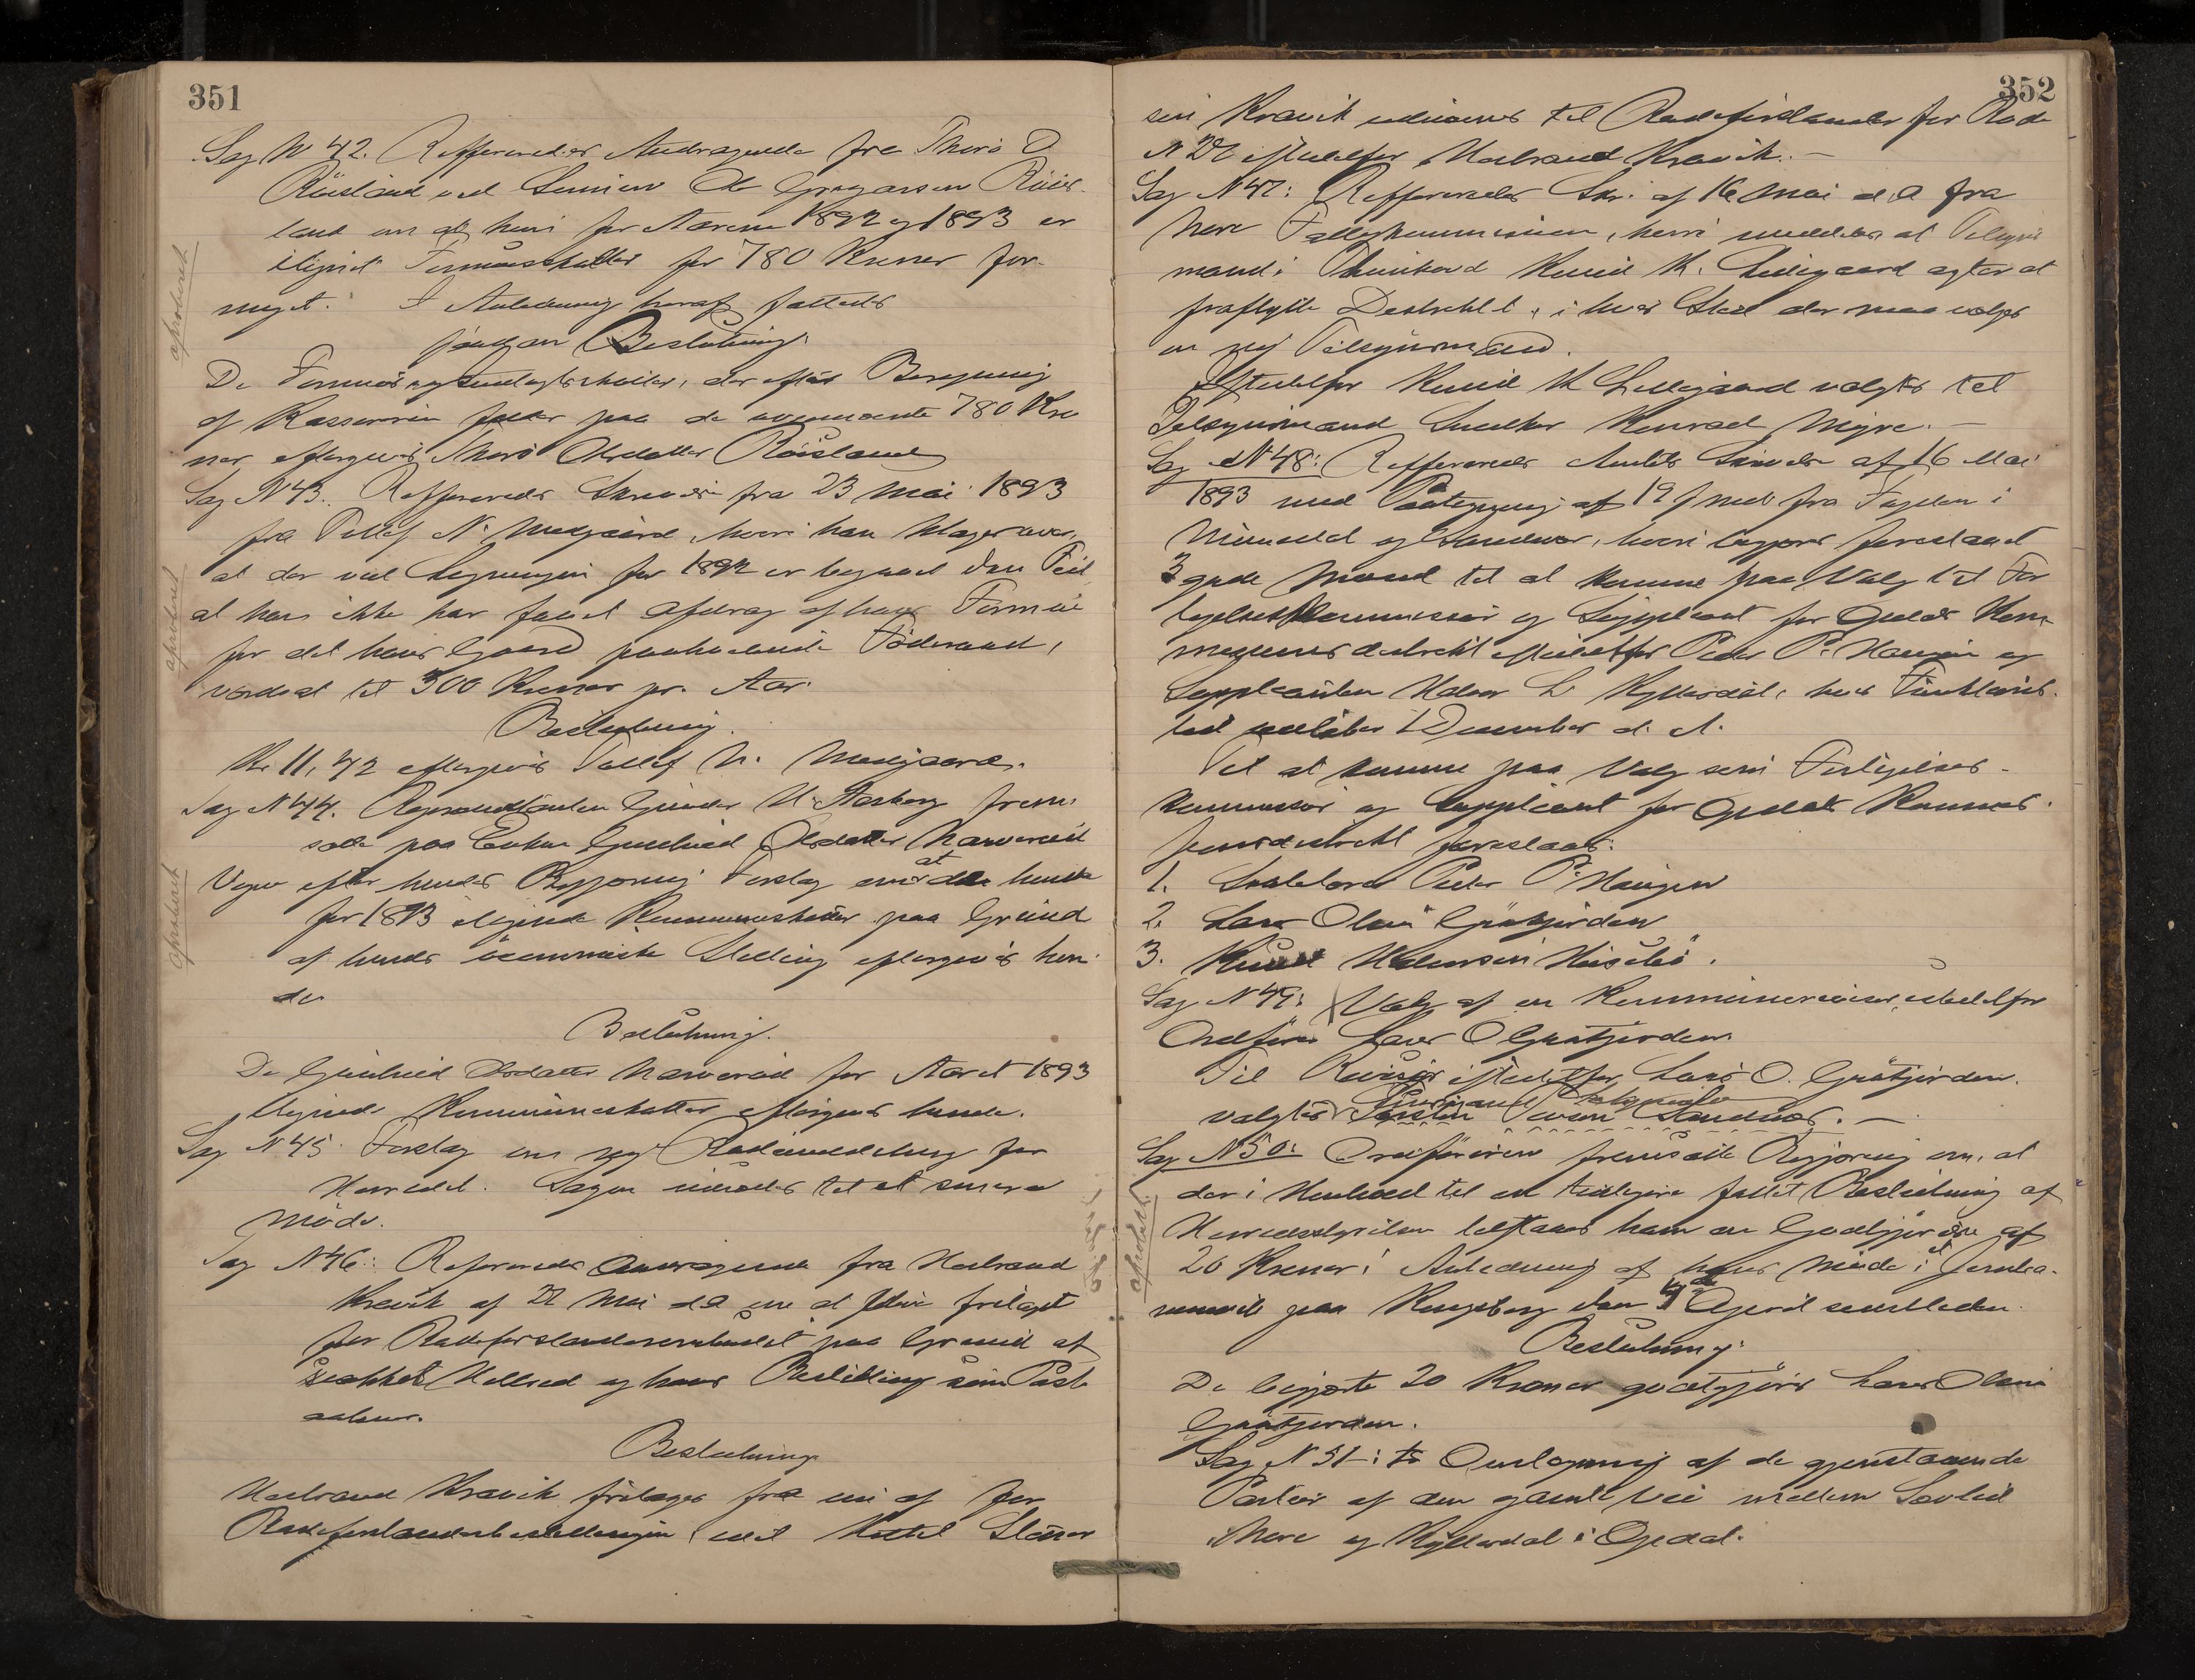 351
Sag N 42. Reffereredes Andragende fra Thoro O
Röisland ved Sønnen Ole Gregarsen Röis-
land om at hun for Aarene 1892 og 1893 er
ilignet Formuesskatter for 780 Kroner for
meget. I Anledning heraf fattedes
saadan Beslutning.
De Formues og Indtægtsskatter, der efter Beregning
af Kassereren falder paa de ovennævnte 780 Kro
ner eftergives Thoro Olsdatter Röisland
Sag N 43. Reffereredes Skrivelse fra 23 Mai 1893
fra Tollef N. Medgaard, hvori han klager over,
at der ved Ligningen for 1892 er begaaet den Feil
at han ikke har faaet Afdrag af hans Formue
for det hans Gaard paahvilende Föderaad,
værdsat til 300 Kroner pr. Aar.
Beslutning.
Kr 11,42 eftergives Tollef N. Medgaard.
Sag N 44. Repræsentanten Gunder H. Aasberg frem-
satte paa Enken Gunhild Olsdatter Narverud
Vegne efter hendes Begjæring Forslag om at de hende
for 1893 ilignede Kommuneskatter paa Grund
af hendes öconomiske Stilling eftergives hen-
de
Beslutning.
De Gunhild Olsdatter Narverud for Aaret 1893
ilignede Kommuneskatter eftergives hende.
Sag N 45. Forslag om ny Rodeinddeling for
Herredet. Sagen udsættes til et senere
Møde.
Sag N 46: Refereredes Andragende fra Herbrand
Kravik af 22 Mai d A om at blive fritaget
for Rodeforstanderombudet paa Grund af
svækket Helbred og hans Bestilling som Post-
aabner.
Beslutning
Herbrand Kravik fritages fra nu af for
Rodeforstanderbestillingen, idet Kittel
aprobert
aprobert
aprobert
352
sen Kravik udnævnes til Rodeforstander for Rode
N 22 istedetfor Herbrand Kravik. —
Sag N 47: Reffereredes Skr. af 16 Mai d. A fra
Nore Fattigkommission, hvori meddeles at Tilsyns
mand i Thunhovd Knud K. Lillegaard agter at
fraflytte Destriktet, i hvis Sted der maa vælges
en ny Tilsynsmand.
Istedetfor Knud K Lillegaard valgtes til
Tilsynsmand Snedker Konrad Myre. —
Sag N 48: Reffereredes Amtets Skrivelse af 16 Mai
1893 med Paategning af 19 f med fra Fogden i
Numedal og Sandsvær, hvori begjæres foreslaaet
3 gode Mænd til at komme paa Valg til For
ligelseskommissær og Suppleant for Opdals Kom-
missionsdestrikt istedetfor Peder P. Haugen og
Suppleanten Halvor L Kjølledal, hvis Funktions-
tid udløber 1 December d. A.
Til at komme paa Valg som Forligelses-
kommissær og Suppleant for Opdals Kommis-
sionsdestrikt foreslaaes:
1. Peder P. Haugen
2. Lars Olsen Gråtjorden
3. Knud Halvorsen .
Sag N 49: Valg af en Kommunerevisor istedetfor
Ordfører Lars O Gråtjorden.
Til Revisor istedetfor Lars O. Gråtjorden.
valgtes .—
Sag N 50: Ordføreren fremsatte Begjæring om, at
der i Henhold til en tidligere fattet Beslutning af
Herredsstyrelsen tilstaaes ham en Godtgjørelse af
20 Kroner i Anledning af hans Møde i et Jernba-
nemøde paa Kongsberg den 4de April sidstleden.
Beslutning.
De begjærte 20 Kroner godtgjøres Lars Olsen
Gråtjorden.
Sag N 51: Omlægning af de gjenstaaende
Partier af den gamle Vei mellem
i Nore og Kjølledal i Opdal.
aprobert